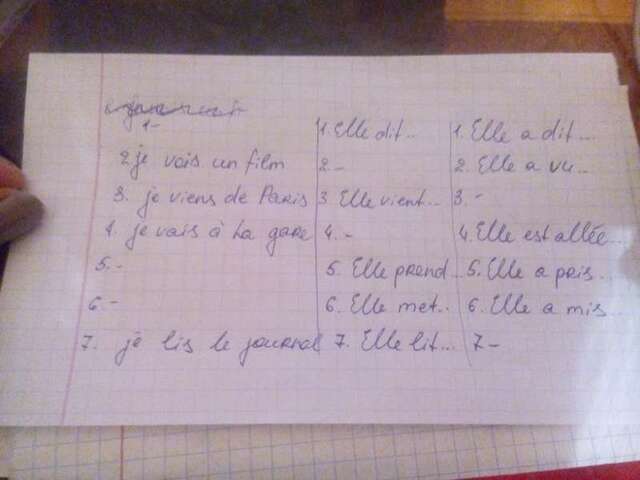 1- 1. Elle dit... 1. Elle a dit...
2 je vois un film 2- 2. Elle a vu...
3. je viens de Paris 3. Elle vient... 3.-
4. je vais à la gare 4.- 4. Elle est allée...
5.- 5. Elle prend... 5. Elle a pris.
6.- 6. Elle met... 6. Elle a mis...
7. je lis le journal 7. Elle lit... 7-